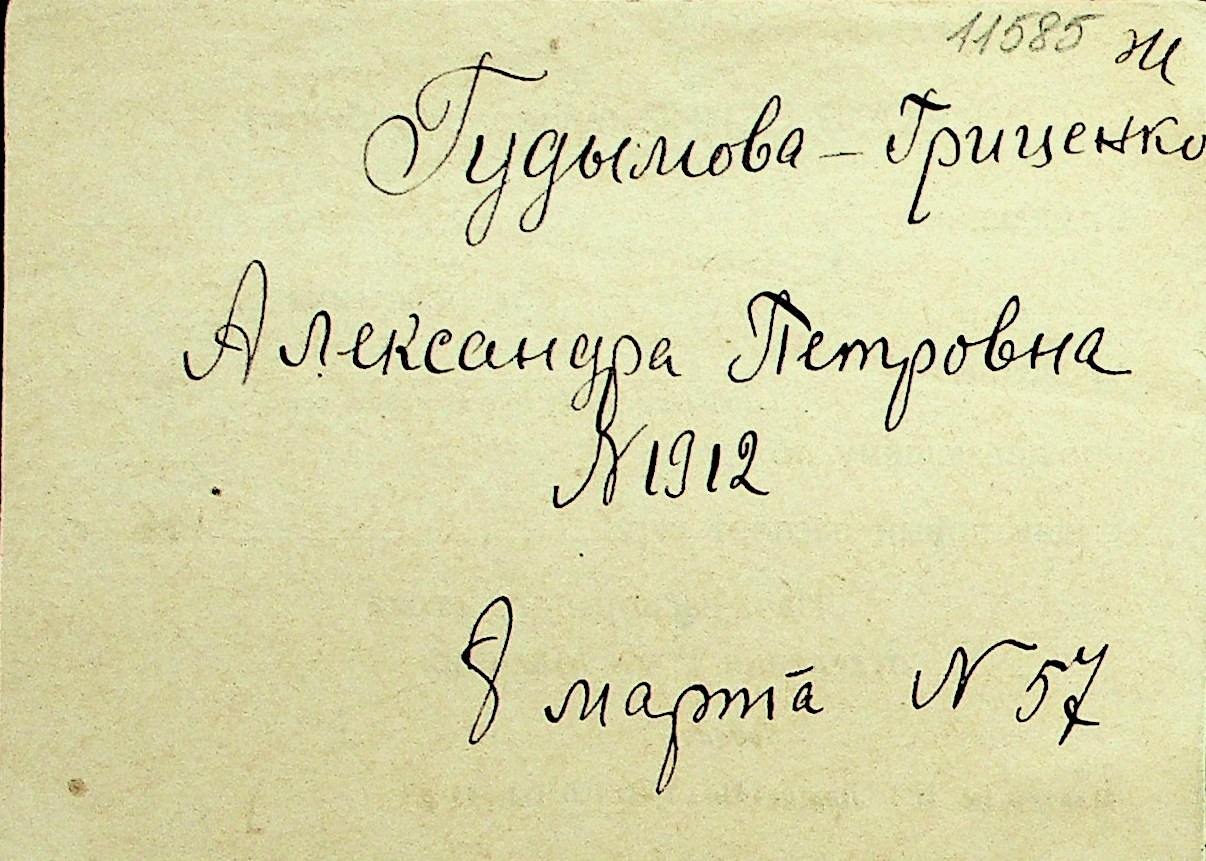 11585 ж
Гудымова - Гриценко
Александра Петровна
N 1912
8 марта N 57